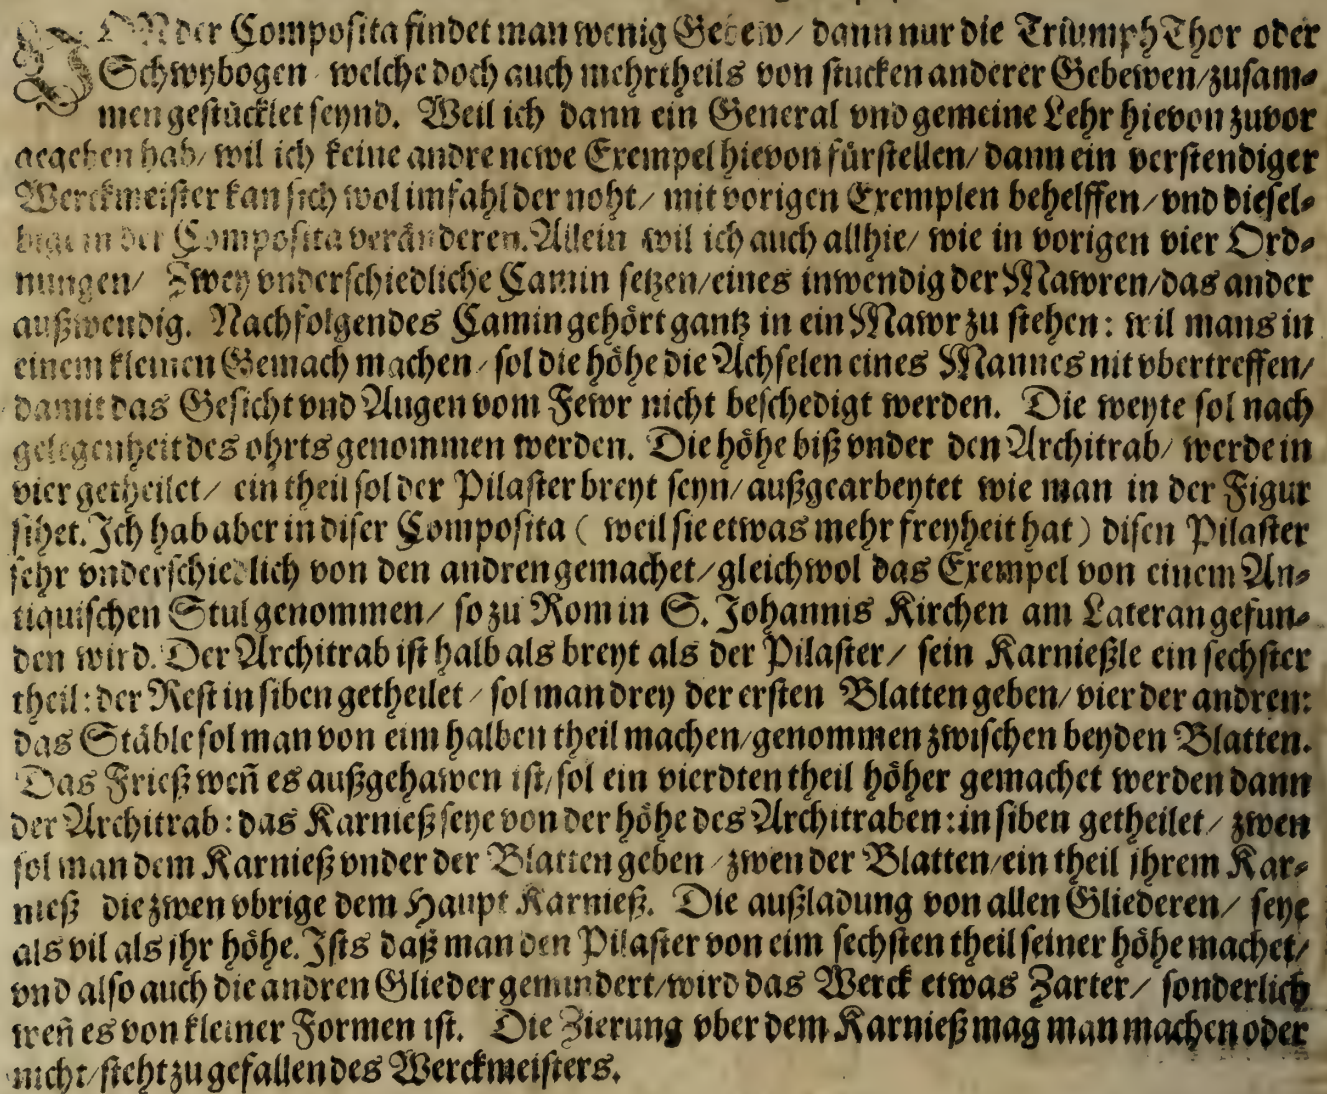 VON der Composita findet man wenig Gebew/ dann nur die Triumph Thor oder
Schwybogen welche doch auch mehrtheils von stucken anderer Gebewen/zusam⸗
men gestücklet seynd. Weil ich dann ein General vnd gemeine Lehr hievon zuvor
gegeben hab/ wil ich keine andre newe Exempel hievon fürstellen/ dann ein verstendiger
Werckmeister kan sich wol im fahl der noht/ mit vorigen Exemplen behelffen/ vnd diesel⸗
bige in der Composita veränderen. Allein wil ich auch allhie/ wie in vorigen vier Ord⸗
nungen/ Zwey vnderschiedliche Camin setzen/ eines inwendig der Mawren/ das ander
außwendig. Nachfolgendes Camin gehört gantz in ein Mawr zu stehen: wil mans in
einem kleinen Gemach machen/ sol die höhe die Achselen eines Mannes nit vbertreffen/
damit das Gesicht vnd Augen vom Fewr nicht beschedigt werden. Die weyte sol nach
gelegenheit des ohrts genommen werden. Die höhe biß vnder den Architrab/ werde in
vier getheilet/ ein theil sol der Pilaster breyt seyn/ außgearbeytet wie man in der Figur
sihet. Ich hab aber in diser Composita ( weil sie etwas mehr freyheit hat ) disen Pilaster
sehr vnderschiedlich von den andren gemachet/ gleichwol das Exempel von einem An⸗
tiquischen Stul genommen/ so zu Rom in S. Johannis Kirchen am Lateran gefun⸗
den wird. Der Architrab ist halb als breyt als der Pilaster/ sein Karnießle ein sechster
theil: der Rest in siben getheilet/ sol man drey der ersten Blatten geben/ vier der andren:
das Stäble sol man von eim halben theil machen/ genommen zwischen beyden Blatten.
Das Frieß weñ es außgehawen ist/ sol ein vierdten theil höher gemachet werden dann
der Architrab: das Karnieß seye von der höhe des Architraben: in siben getheilet/ zwen
sol man dem Karnieß vnder der Blatten geben/ zwen der Blatten/ ein theil jhrem Kar⸗
nieß die zwen vbrige dem Haupt Karnieß. Die außladung von allen Gliederen/ seye
als vil als jhr höhe. Ists daß man den Pilaster von eim sechsten theil seiner höhe machet/
vnd also auch die andren Glieder gemindert/ wird das Werck etwas Zarter/ sonderlich
weñ es von kleiner Formen ist. Die Zierung vber dem Karnieß mag man machen oder
nicht/ steht zu gefallen des Werckmeisters.